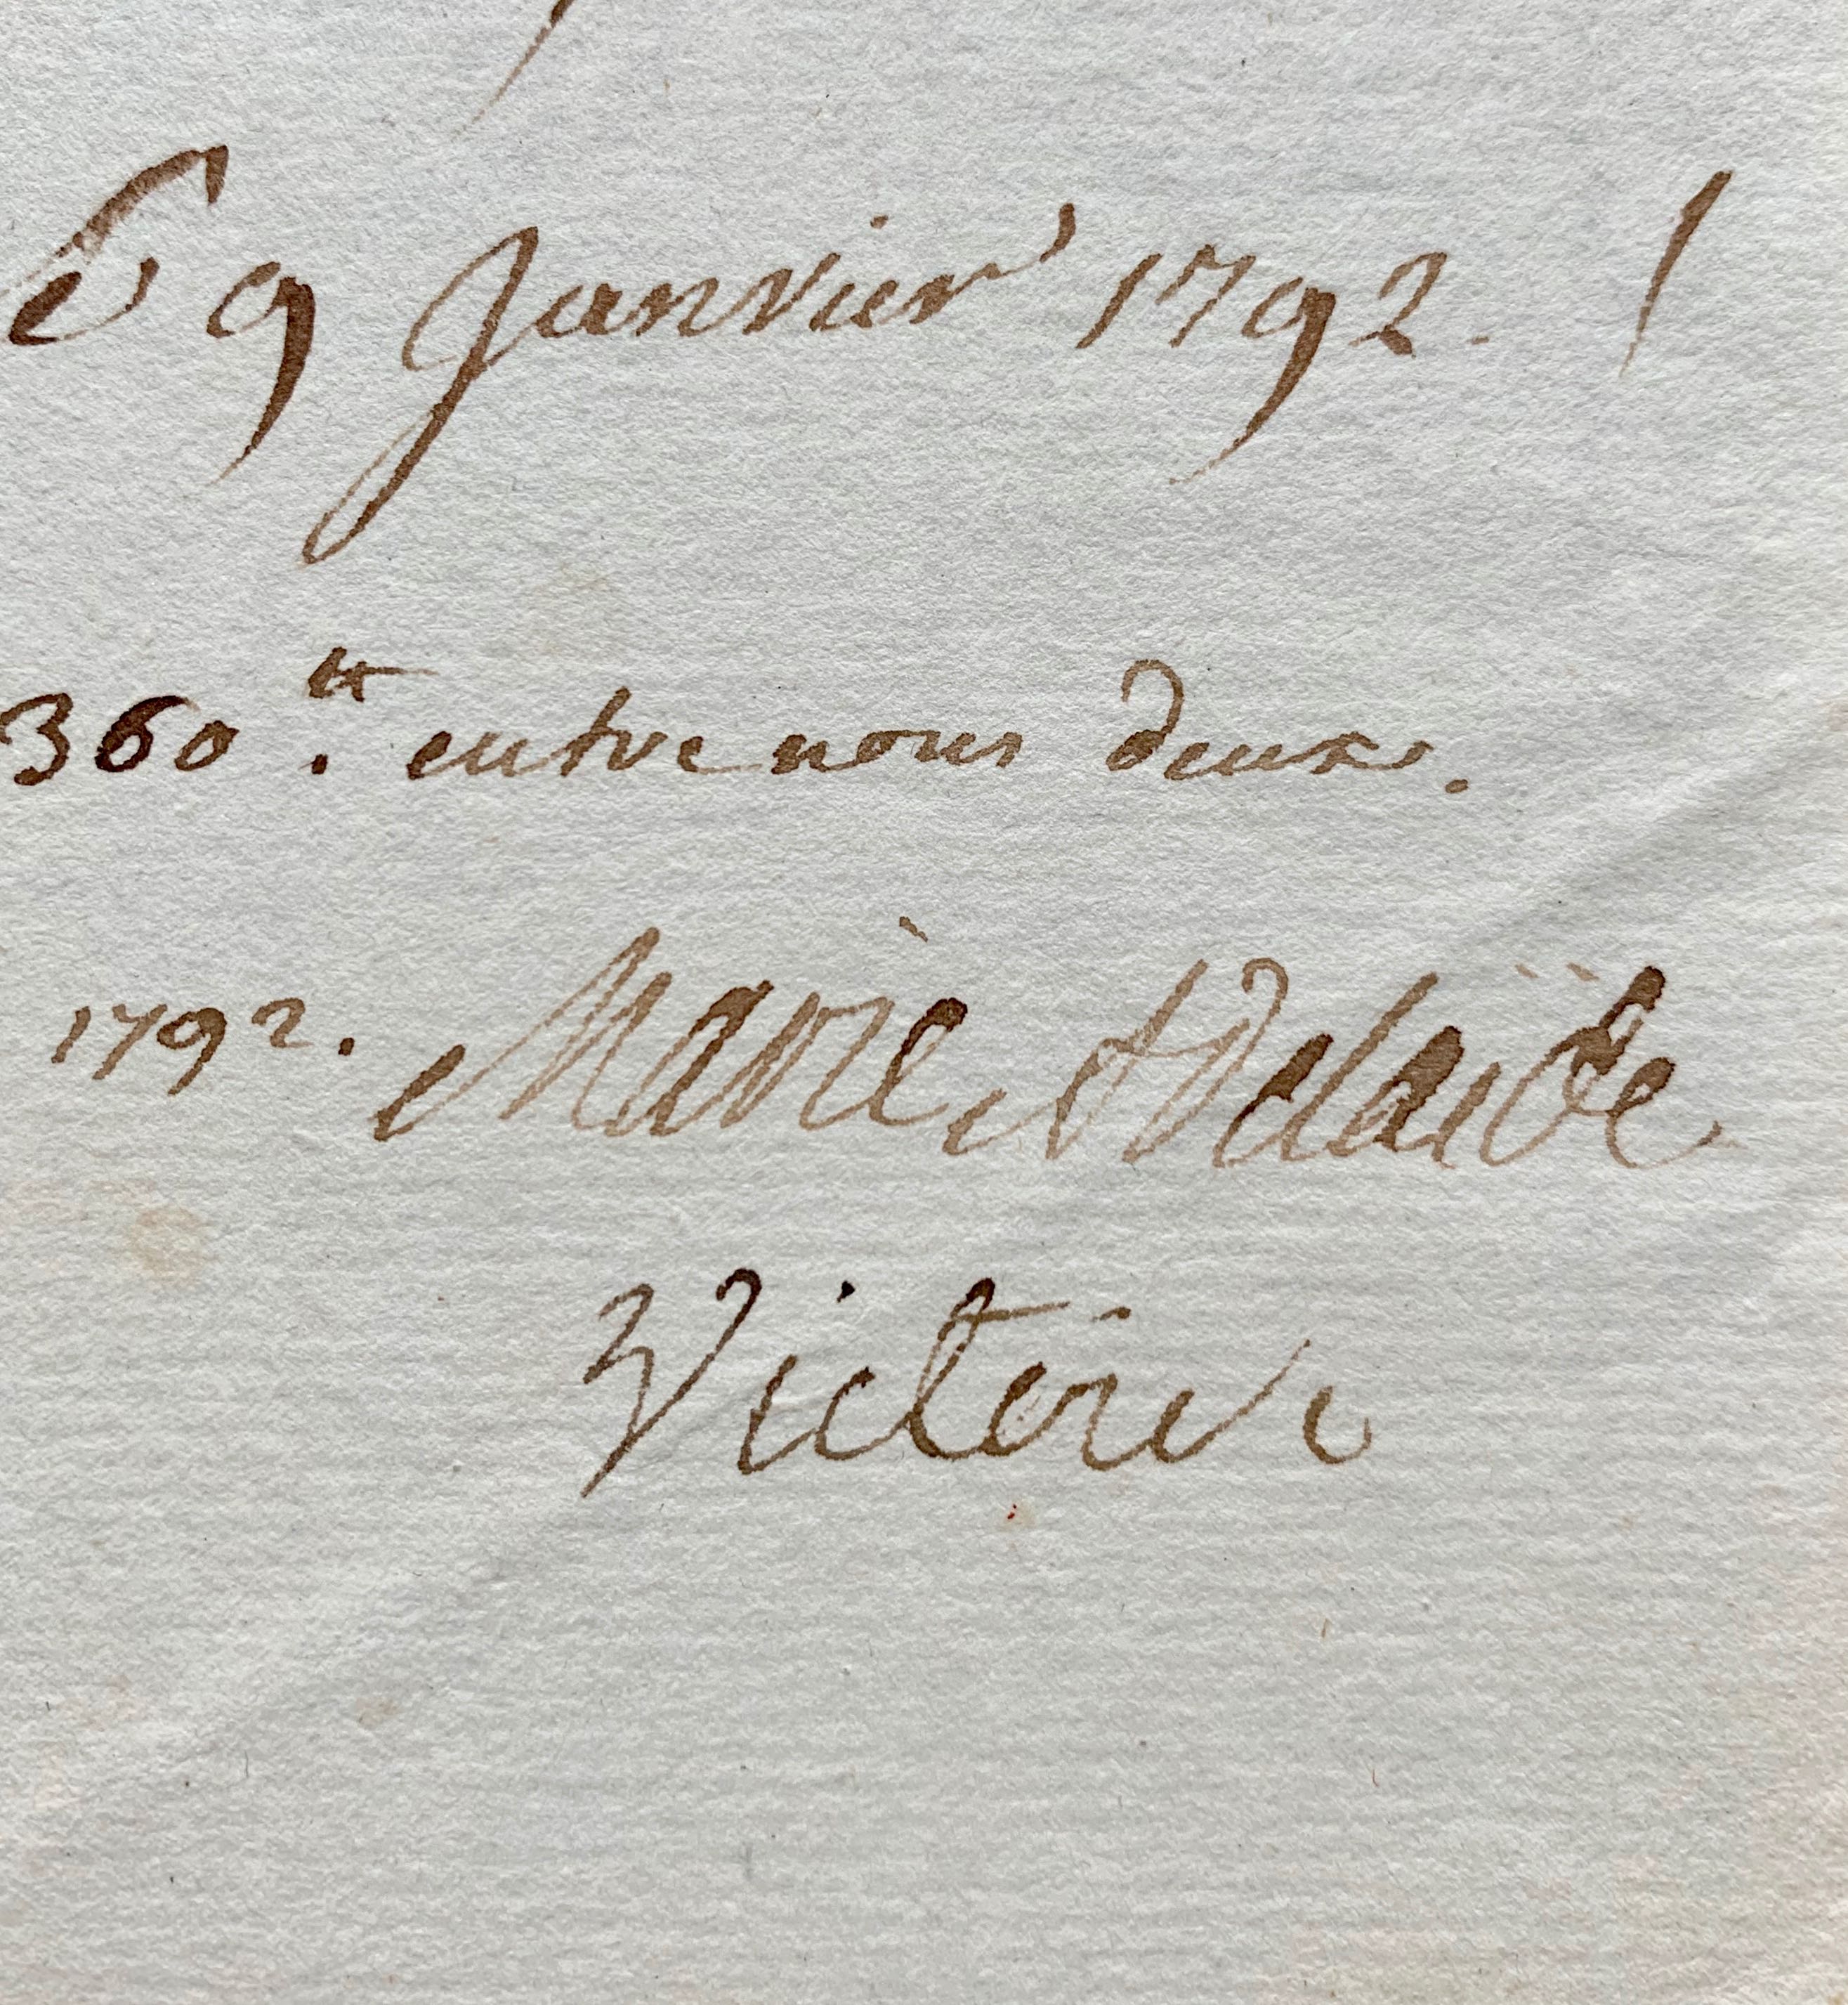 Le 9 Janvier 1792.
360.ᵗᵗ entre nous deux.
1792. Marie Adelaïde
Victoire